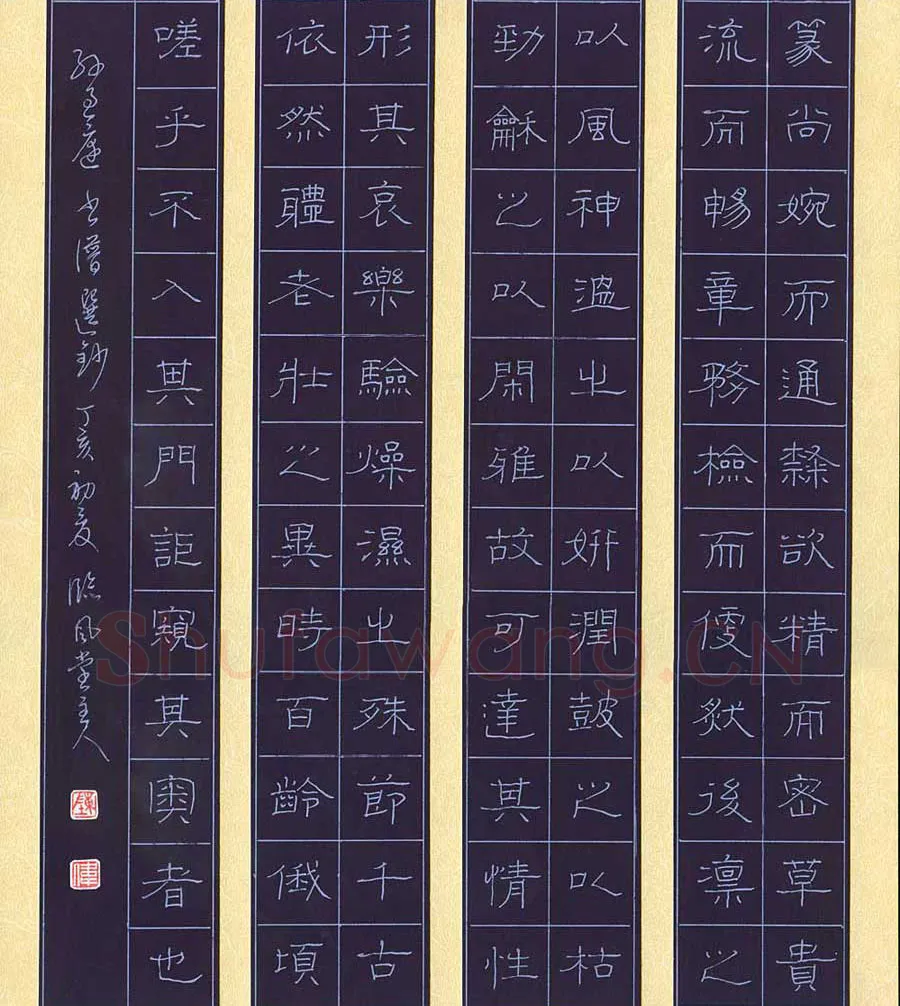 篆尚婉而通隸欲精而密草貴
流而暢章務檢而便然後凛之
以風神温之以妍潤鼓之以枯
勁龢之以閑雅故可達其情性
形其哀樂驗燥濕之殊節千古
依然體老壯之異時百齡俄頃
嗟乎不入其門詎窺其奧者也
孫過庭書譜選鈔 丁亥初夏 臨風堂主人
Shufawang.CN